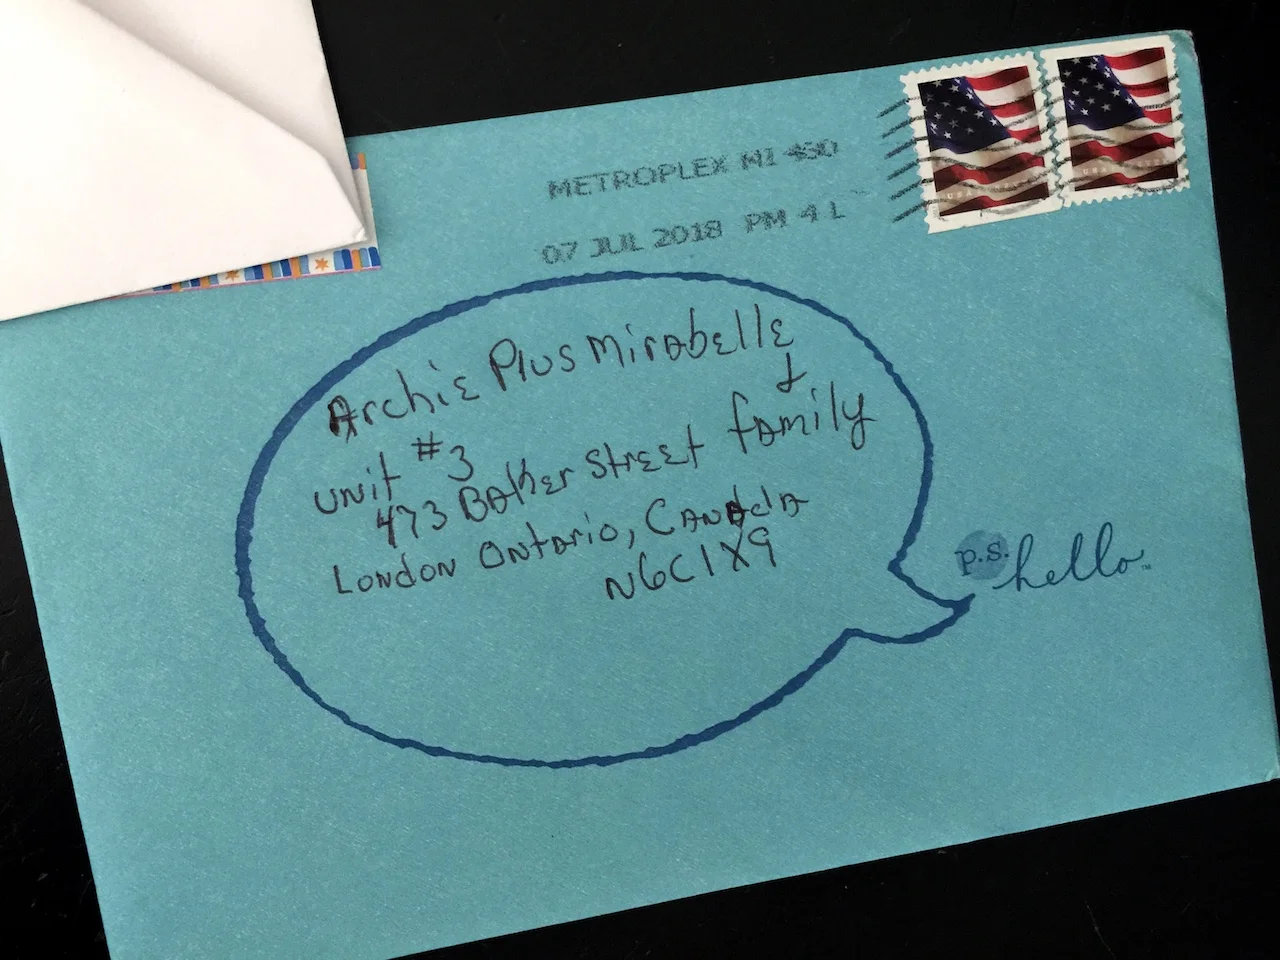 METROPLEX MI 480
07 JUL 2018 PM 4 L
Archie Plus Mirabelle
+ family
unit #3
473 Baker Street
London Ontario, Canada
N6C1X9
p.s. hello™